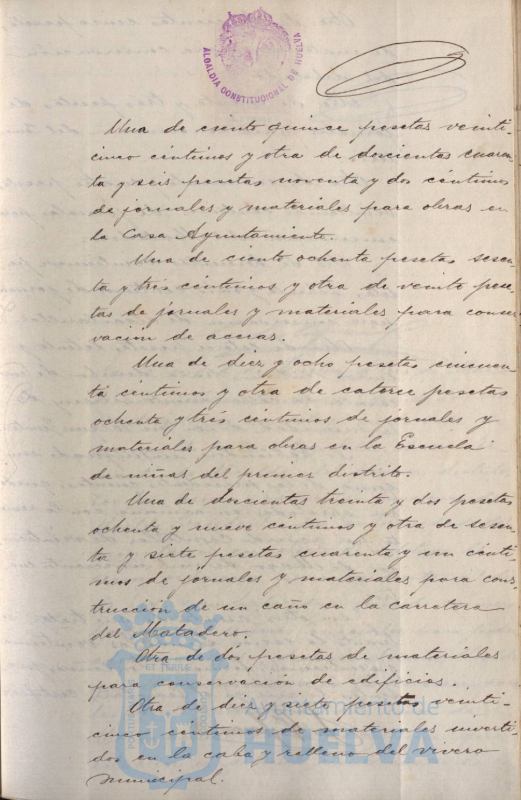 ALCALDIA CONSTITUCIONAL DE HUELVA
Una de ciento quince pesetas veinti-
cinco céntimos y otra de doscientas cuaren-
ta y seis pesetas noventa y dos céntimos
de jornales y materiales para obras en
la Casa Ayuntamiento.
Una de ciento ochenta pesetas sesen-
ta y trés céntimos y otra de veinte pese-
tas de jornales y materiales para conser-
vación de aceras.
Una de diez y ocho pesetas cincuen-
ta céntimos y otra de catorce pesetas
ochenta y trés céntimos de jornales y
materiales para obras en la Escuela
de niñas del primer distrito.
Una de doscientas treinta y dos pesetas
ochenta y nueve céntimos y otra de sesen-
ta y siete pesetas cuarenta y un cénti-
mos de jornales y materiales para cons-
trucción de un caño en la carretera
del Matadero.
Otra de dos pesetas de materiales
para conservación de edificios.
Otra de diez y siete pesetas veinti-
cinco céntimos de materiales inverti-
dos en la caba y relleno del vivero
municipal.
Ayuntamiento de
HUELVA